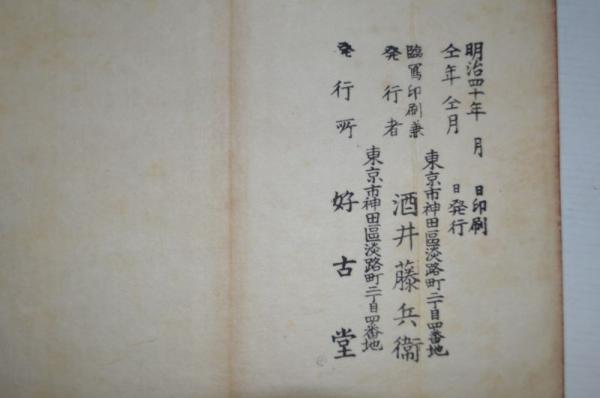 明治四十年 月 日印刷
仝年仝月 日発行
東京市神田區淡路町二丁目四番地
臨寫印刷兼
発行者 酒井藤兵衞
東京市神田區淡路町二丁目四番地
発行所 好古堂